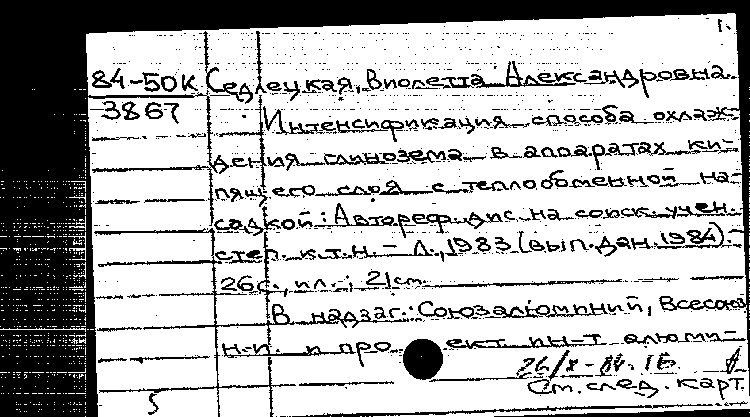 1.
84-50К Седлецкая, Виолетта Александровна.
3867
Интенсификация способа охлаж-
дения глинозема в аппаратах ки-
пящего слоя с теплообменной на-
садкой: Автореф. дис. на соиск. учен.
степ. к.т.н. - Л., 1983 (вып. дан. 1984).-
26 с., ил.; 21 см.
В надзаг.: Союзалюминий, Всесоюз
н.-и. и проект. ин-т алюми-
26/X-84. 1Б
См. след. карт.
5